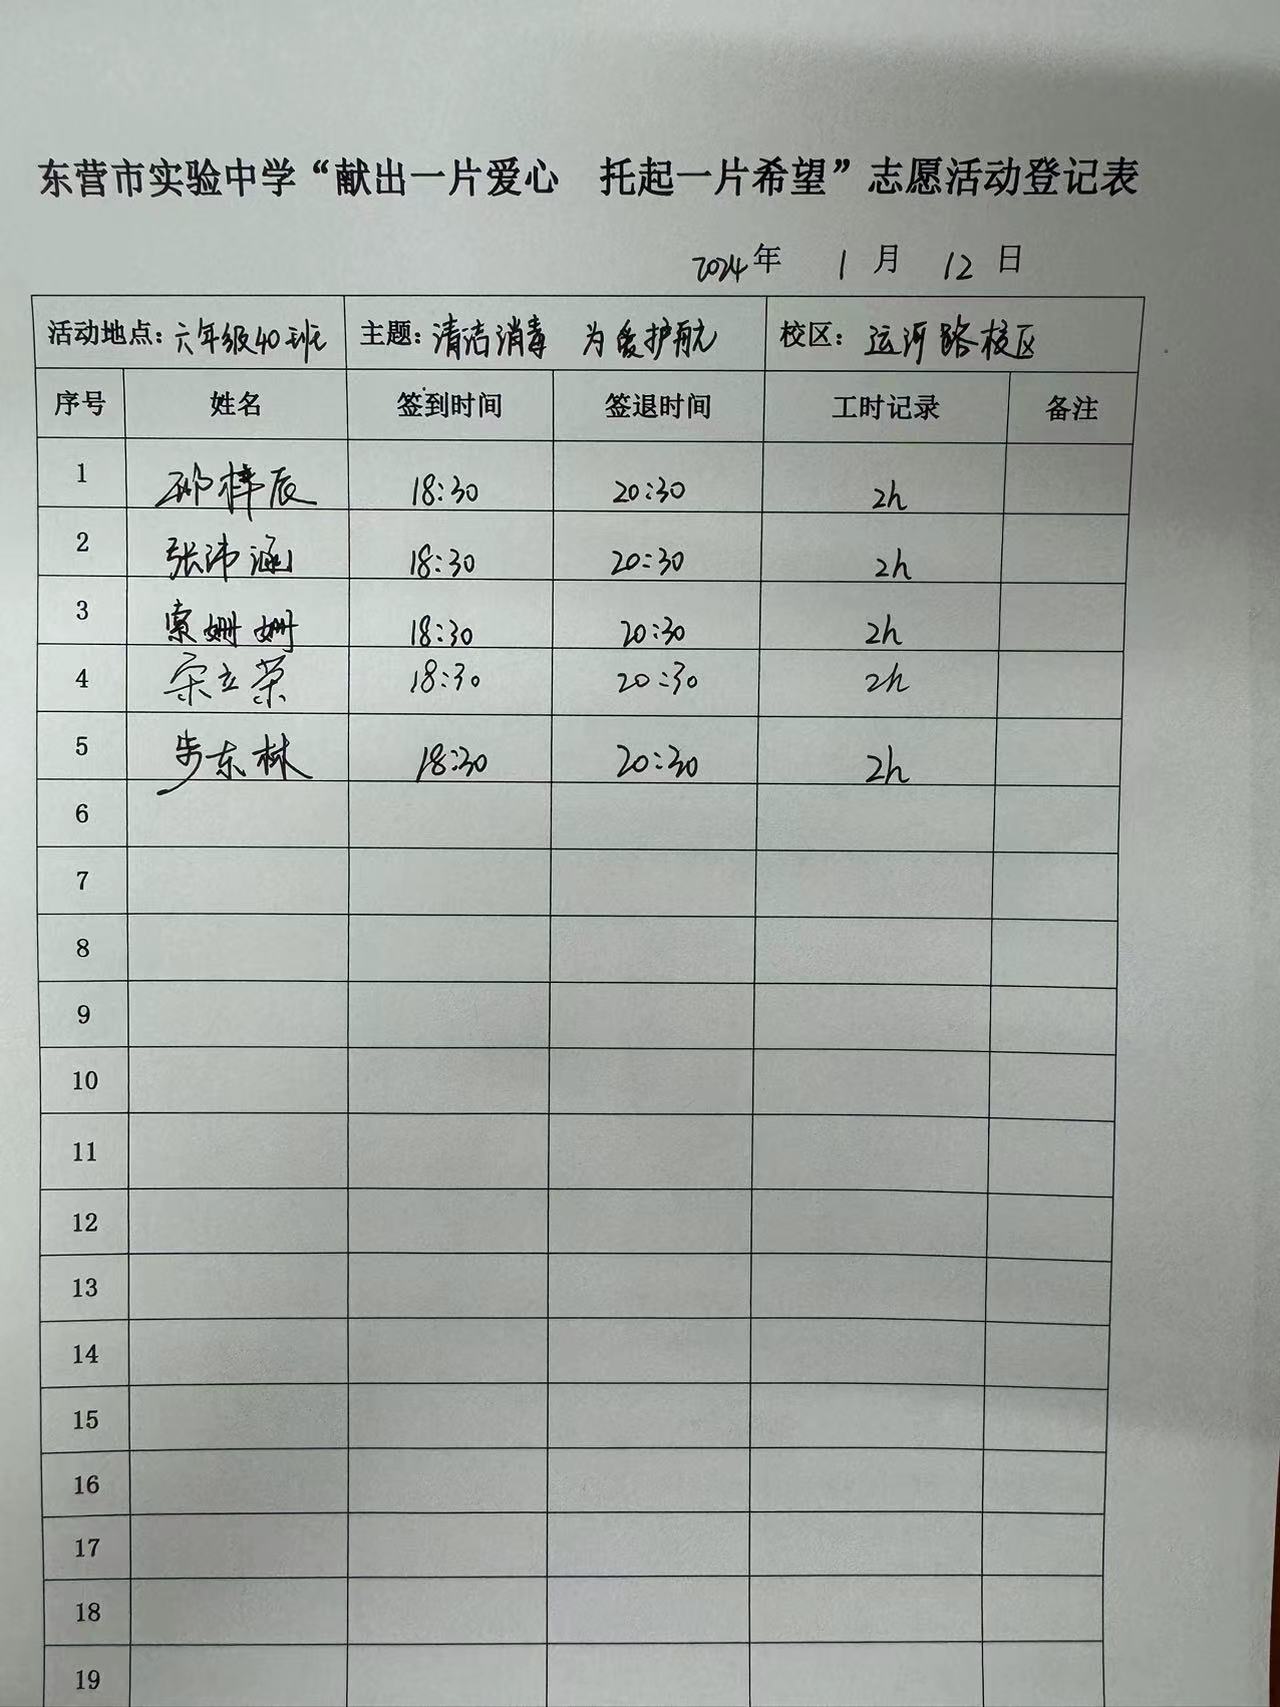 东营市实验中学“献出一片爱心 托起一片希望”志愿活动登记表
2024年 1月 12日
活动地点：六年级40班 主题：清洁消毒 为爱护航 校区：运河路校区
序号 姓名 签到时间 签退时间 工时记录 备注
1 梓辰 18:30 20:30 2h
2 张沛涵 18:30 20:30 2h
3 索姗姗 18:30 20:30 2h
4 宋立荣 18:30 20:30 2h
5 步东林 18:30 20:30 2h
6
7
8
9
10
11
12
13
14
15
16
17
18
19